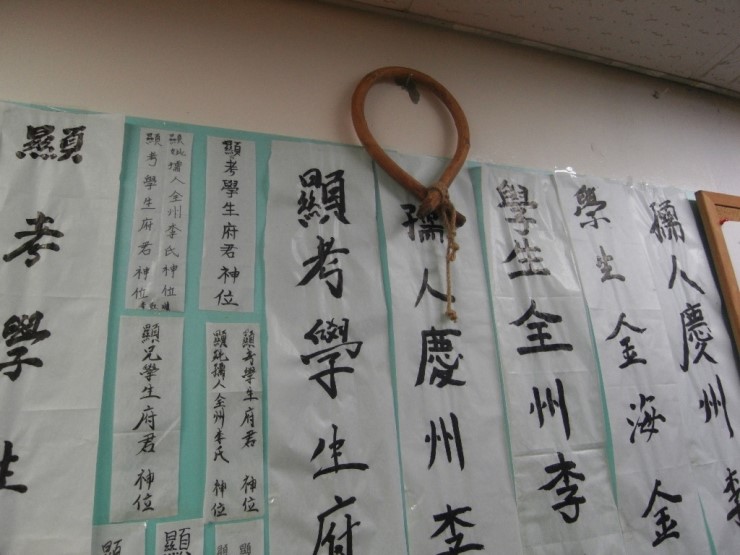 顯考學生
顯妣孺人全州李氏神位
顯考學生府君神位
顯考學生府君神位
顯兄學生府君神位
顯考學生府君神位
顯妣孺人全州李氏神位
顯
顯
顯
顯考學生府
孺人慶州李
學生全州李
學生金海金
孺人慶州李